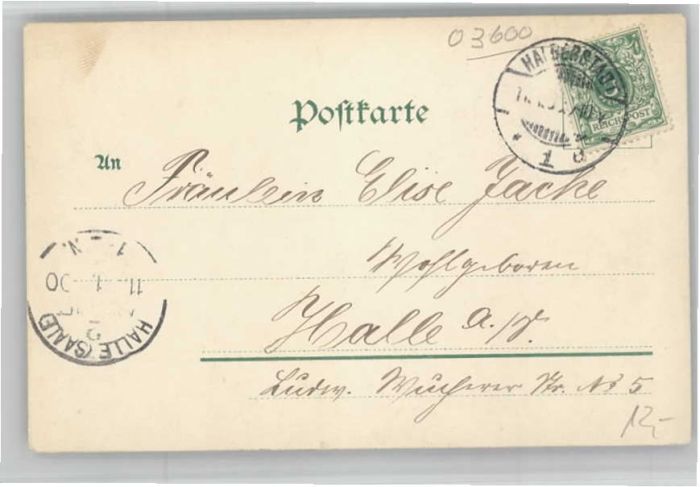 03600
HALBERSTADT
REICHSPOST
* 1 d *
Postkarte
An
Fräulein Elise Jacke
Wohlgeboren
Halle a./S.
Ludw. Wucherer Str. No 5
12,-
1-N.
11. 1. 00
2
HALLE (SAALE)